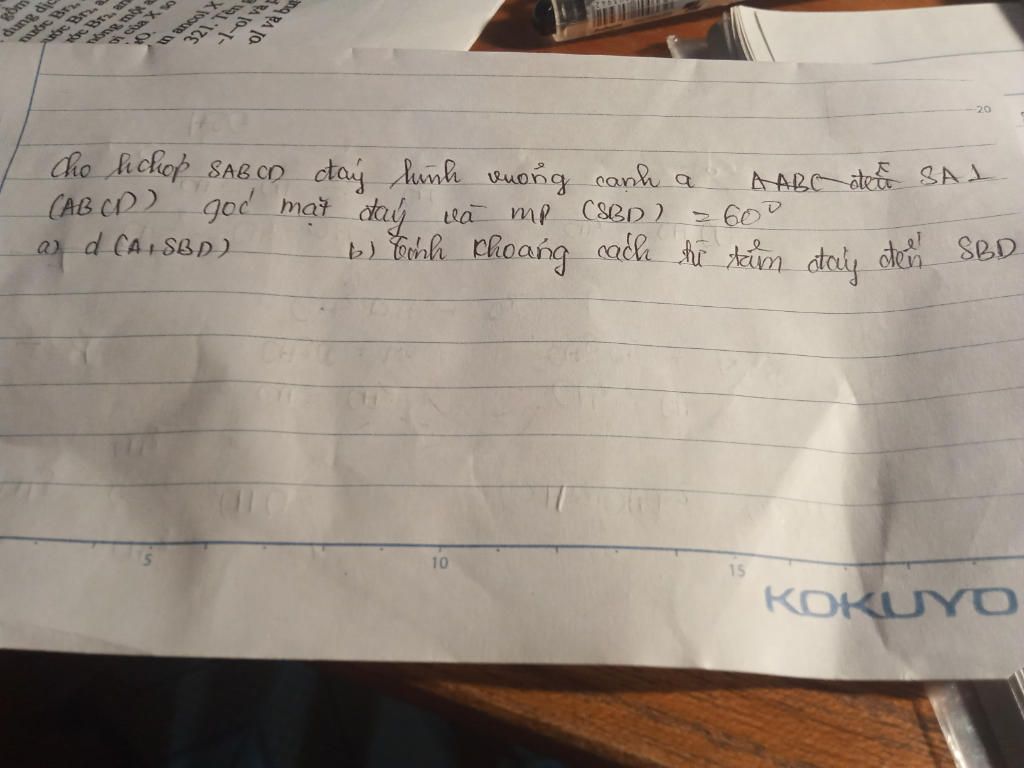 gồm
dung dịc
nước Br₂,
ước Br₂, a
ớc Br₂, an
nồng một a
ơi của X so
O.
m ancol X
32). Tên g
-1-ol và p
-ol và bu
20
Cho hchóp SABCD đáy hình vuông cạnh a ΔABC đều SA⊥
(ABCD) góc mặt đáy và mp (SBD) = 60⁰
a) d(A,SBD) b) tính khoảng cách từ tâm đáy đến SBD
5 10 15
KOKUYO